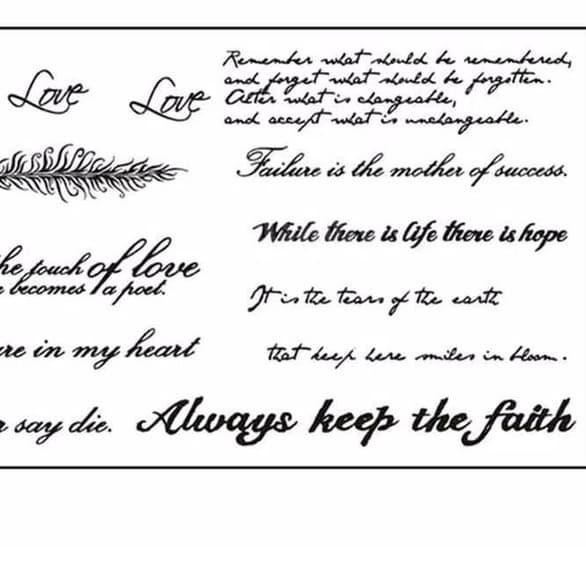 Love Love
Remember what should be remembered,
and forget what should be forgotten.
Alter what is changeable,
and accept what is unchangeable.
Failure is the mother of success.
While there is life there is hope
he touch of love
becomes a poet.
It is the tears of the earth
re in my heart
that keep here smiles in bloom.
say die.
Always keep the faith